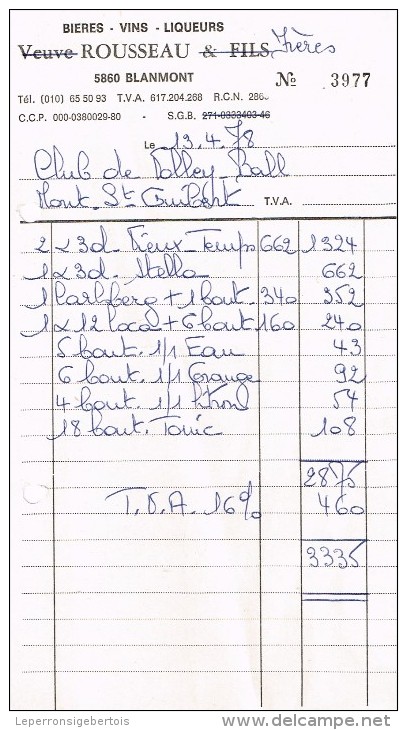 BIERES - VINS - LIQUEURS
Veuve ROUSSEAU & FILS Frères
5860 BLANMONT
№ 3977
Tél. (010) 65 50 93 T.V.A. 617.204.268 R.C.N. 286
C.C.P. 000-0380029-80 - S.G.B. 271-0333403-46
Le 13.4.78
Club de Volley-Ball
Mont St Guibert T.V.A.
2 x 3d Vieux-Temps 662 1324
1 x 3d. Stella 662
1 Carlsberg + 1 bout. 340 352
1 x 12 coca + 6 bout. 160 240
5 bout. 1/1 Eau 43
6 bout. 1/1 Orange 92
4 bout. 1/1 Citron 54
18 bout. Tonic 108
2875
T.V.A. 16% 460
3335
Leperronsigebertois
delcampe.net